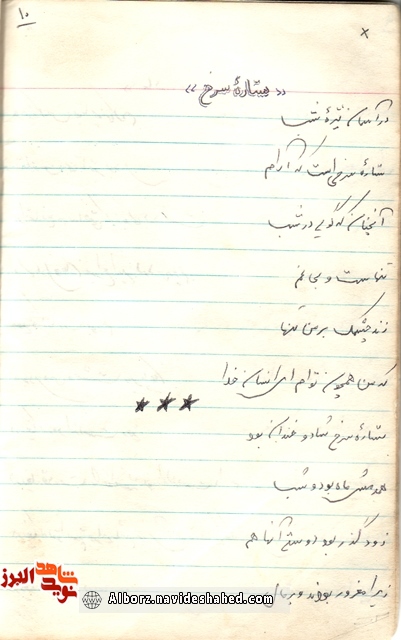 ۱۰
×
«ستارهٔ سرخ»
در آسمان تیرهٔ شب
ستارهٔ سرخی است که آرام
آنچنان که گویی در شب
تنهاست و بی غم
زند چشمک بر من تنها
که من همچون توام ای انسان خدا
★ ★ ★
ستارهٔ سرخ شاد و خندان بود
همدمش ماه بود و شب
زود گذر بود دوستی آنها هم
زیرا مغرور بودند و
شاهد
نوید البرز
Alborz.navideshahed.com